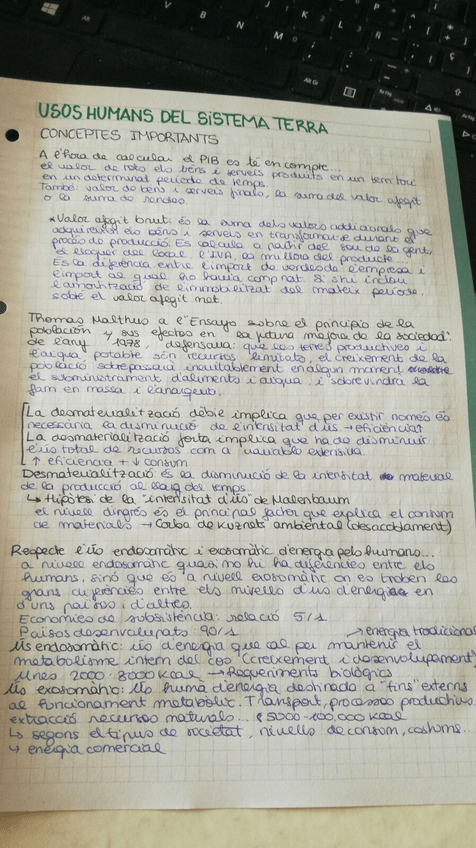 USOS HUMANS DEL SISTEMA TERRA
CONCEPTES IMPORTANTS
A l'hora de calcular el PIB es té en compte...
el valor de tots els béns i serveis produïts en un territori
en un determinat període de temps.
També: valor de béns i serveis finals, la suma del valor afegit
o la suma de rendes.
*Valor afegit brut: és la suma dels valors addicionals que
adquireixen els béns i serveis en transformar-se durant el
procés de producció. Es calcula a partir del sou de la gent,
el lloguer del local, l'IVA, la millora del producte.
És la diferència entre l'import de vendes de l'empresa i
l'import al qual ho havia comprat. Si s'hi inclou
l'amortització de l'immobilitzat del mateix període,
sobre el valor afegit net.
Thomas Malthus a l'"Ensayo sobre el principio de la
población y sus efectos en la futura mejora de la sociedad"
de l'any 1978, defensava: que les terres productives i
l'aigua potable són recursos limitats, el creixement de la
població sobrepassarà inevitablement en algun moment
el subministrament d'aliments i aigua i sobrevindrà la
fam en massa i l'anarquia.
La desmaterialització dèbil implica que per existir només és
necessària la disminució de l'intensitat d'ús → eficiència↑
La desmaterialització forta implica que ha de disminuir
l'ús total de recursos com a variable extensiva.
↑ eficiència + ↓ consum
Desmaterialització: és la disminució de la intensitat material
de la producció al llarg del temps.
↳ Hipòtesi de la "intensitat d'ús" de Malenbaum
el nivell d'ingrés és el principal factor que explica el consum
de materials → Corba de Kuznets ambiental (desacoblament)
Respecte l'ús endosomàtic i exosomàtic d'energia pels humans...
a nivell endosomàtic quasi no hi ha diferències entre els
humans, sinó que és a nivell exosomàtic on es troben les
grans diferències entre els nivells d'ús d'energia en
d'uns països i d'altres.
Economies de subsistència: relació 5/1
Països desenvolupats: 90/1
→ energia tradicional
Ús endosomàtic: ús d'energia que cal per mantenir el
metabolisme intern del cos (creixement i desenvolupament)
Unes 2000-3000 kcal → Requeriments biològics
Ús exosomàtic: Ús humà d'energia destinada a "fins" externs
al funcionament metabòlic. Transport, processos productius,
extracció recursos naturals... 5000-100.000 kcal
↳ segons el tipus de societat, nivells de consum, costums...
→ energia comercial